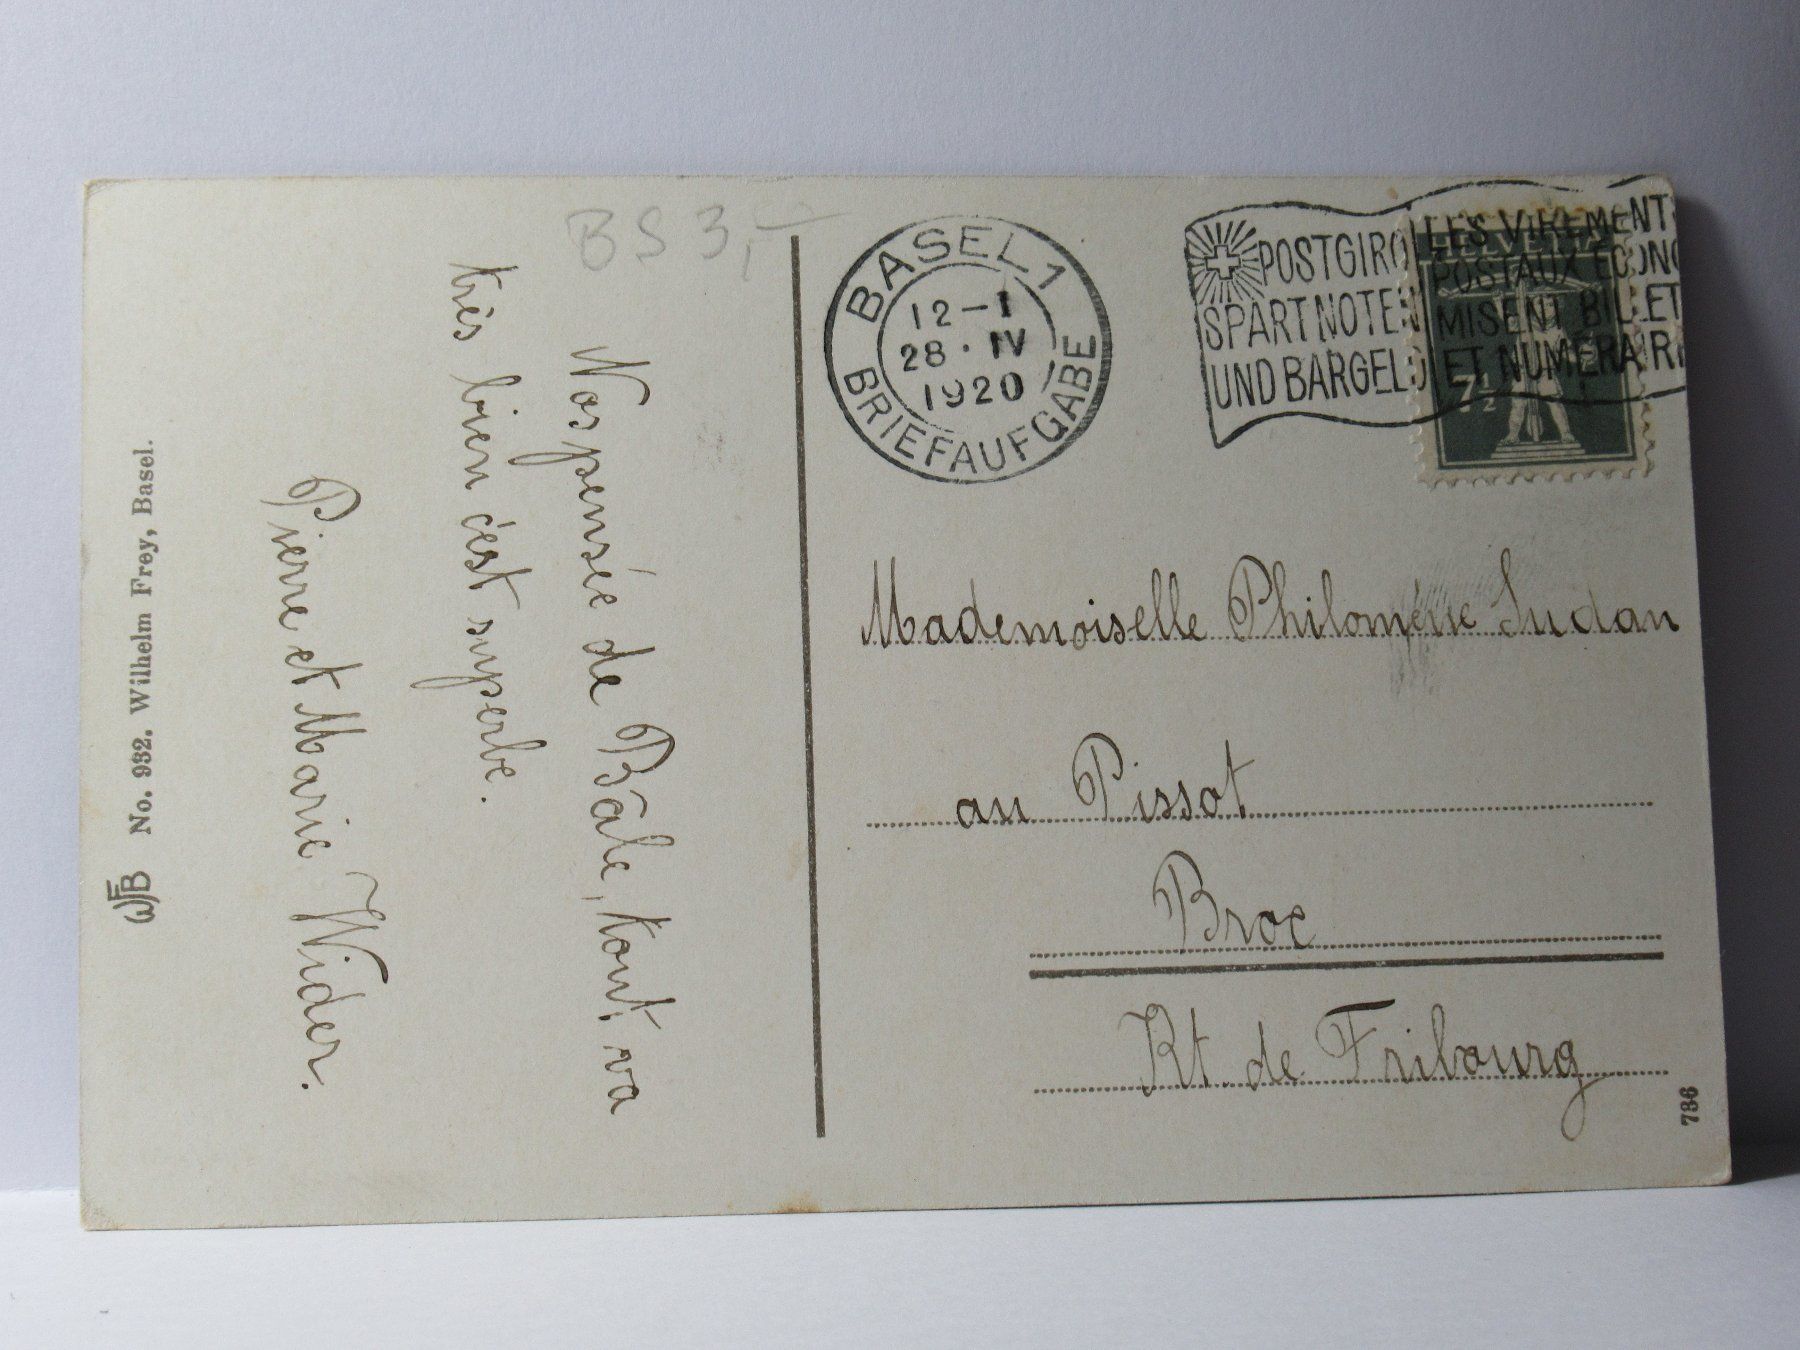 BS 3,-
Nos pensée de Bâle, tout va
très bien c'est superbe.
Pierre et Marie Wider.
No. 932. Wilhelm Frey, Basel.
WFB
BASEL 1
12-1
28·IV
1920
BRIEFAUFGABE
POSTGIRO
SPART NOTEN
UND BARGELD
LES VIREMENT
POSTAUX ÉCONO
MISENT BILLET
ET NUMÉRAIRE
HELVETIA
7½
Mademoiselle Philomène Sudan
au Pissot
Broc
Kt. de Fribourg
736